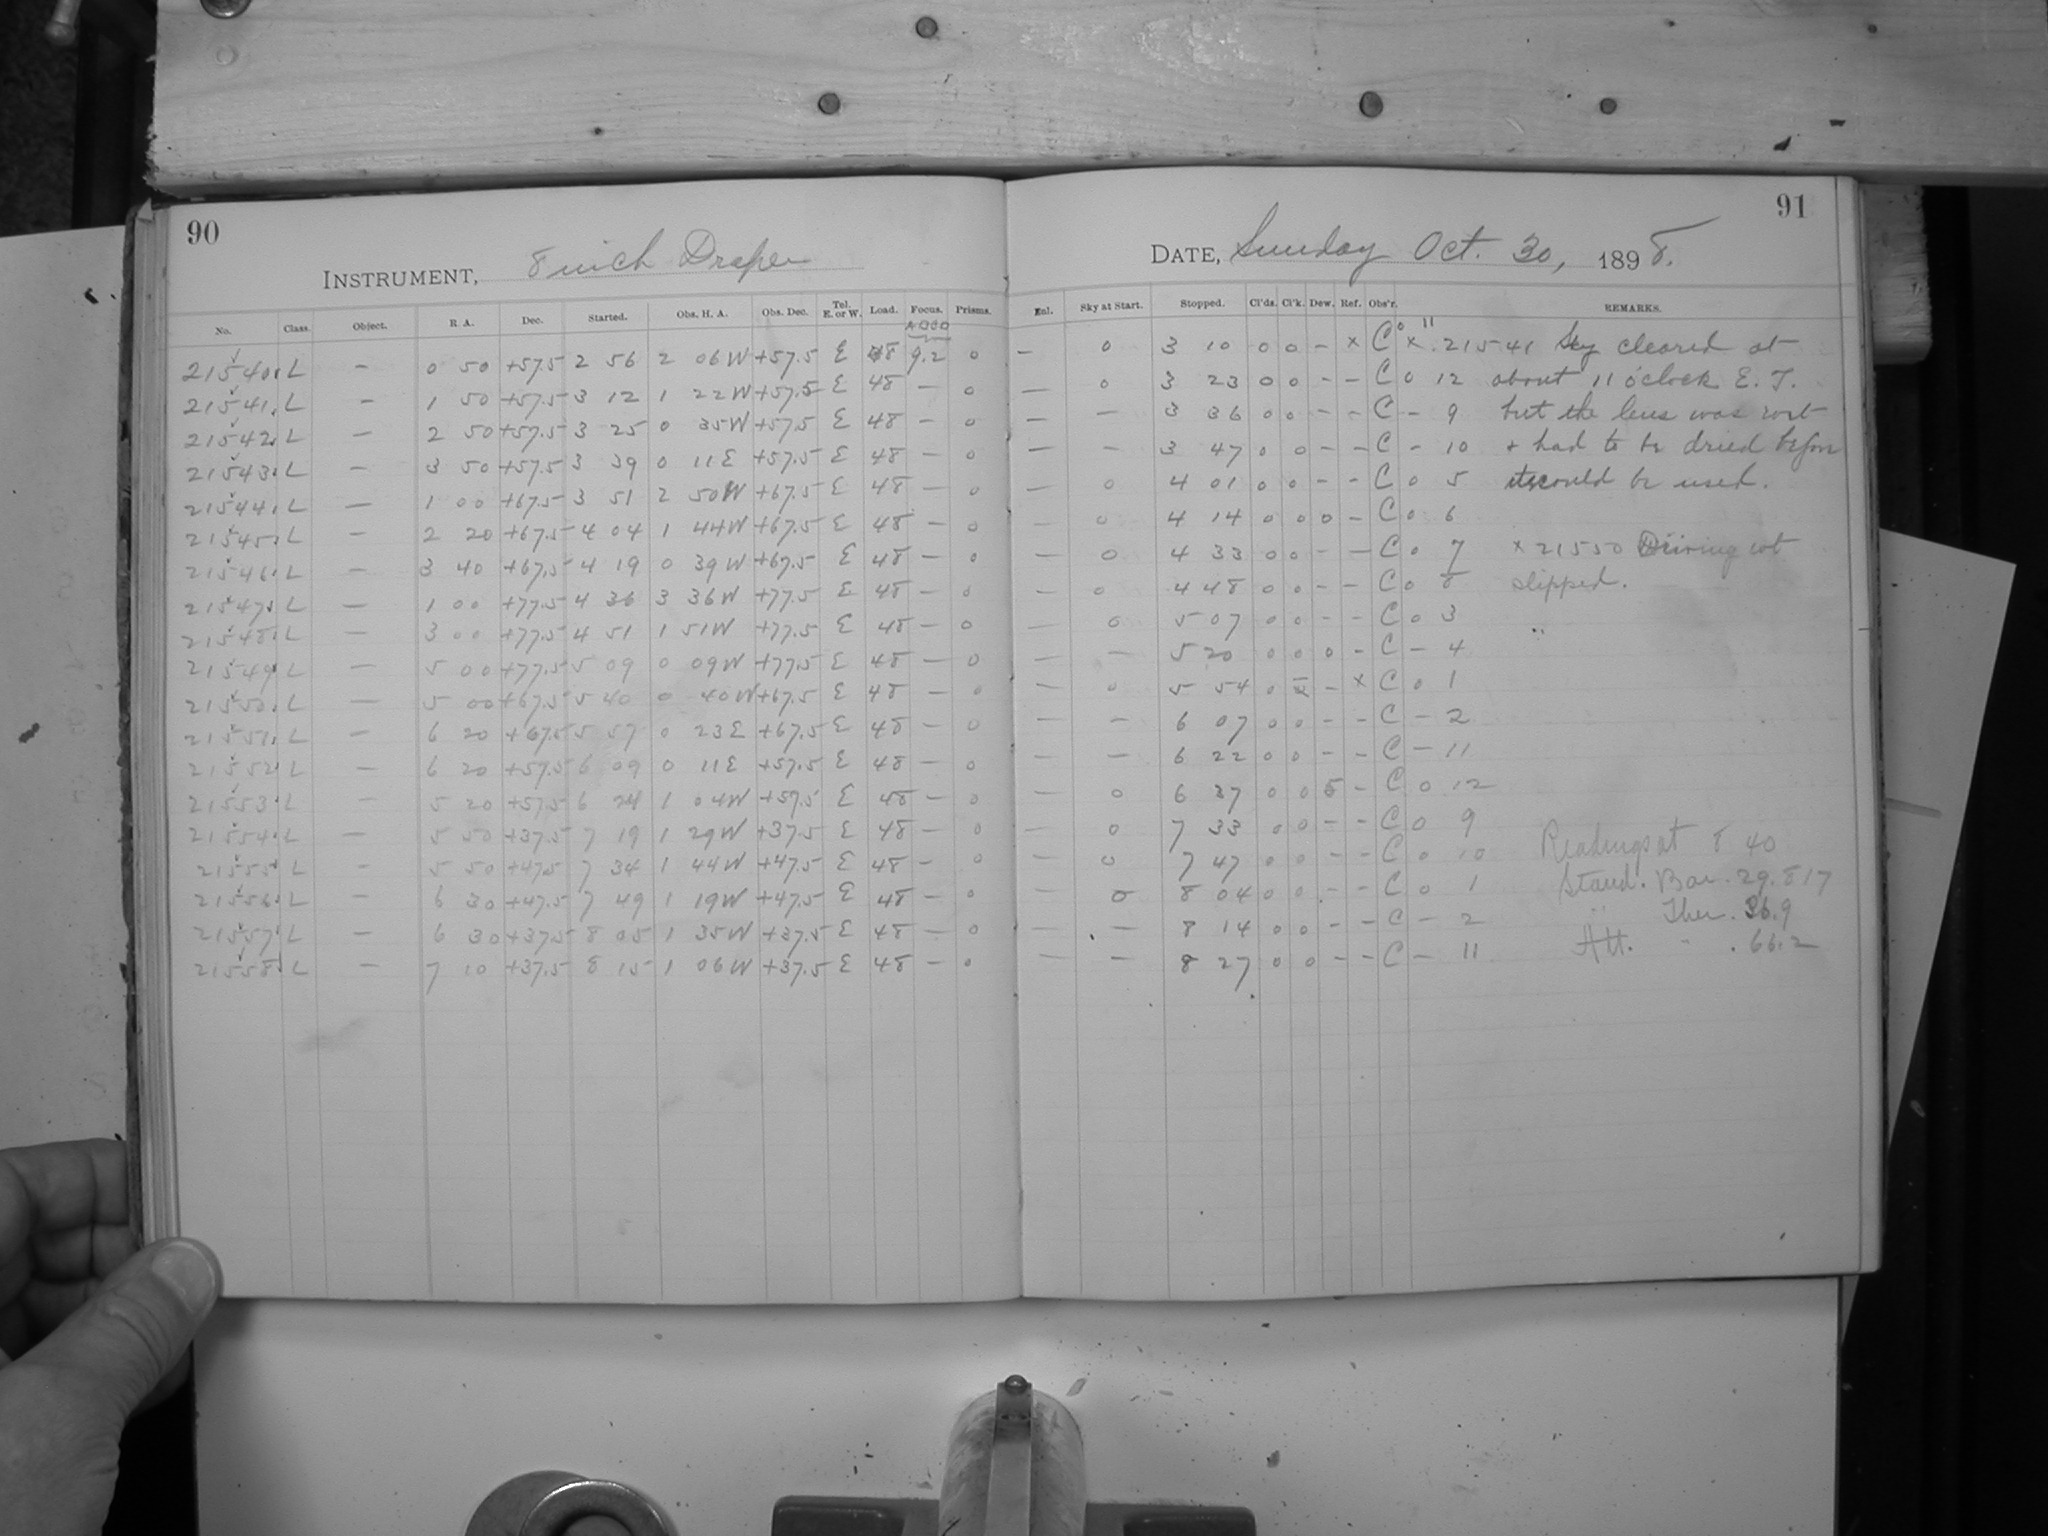 90
INSTRUMENT, 8 inch Draper
No. Class. Object. R A. Dec. Started. Obs. H. A. Obs. Dec. Tel. E. or W. Load. Focus. Prisms.
21540 L — 0 50 +57.5 2 56 2 06W +57.5 E 48 9.2 0
21541 L — 1 50 +57.5 3 12 1 22W +57.5 E 48 — 0
21542 L — 2 50 +57.5 3 25 0 35W +57.5 E 48 — 0
21543 L — 3 50 +57.5 3 39 0 11E +57.5 E 48 — 0
21544 L — 1 00 +67.5 3 51 2 50W +67.5 E 48 — 0
21545 L — 2 20 +67.5 4 04 1 44W +67.5 E 48 — 0
21546 L — 3 40 +67.5 4 19 0 39W +67.5 E 48 — 0
21547 L — 1 00 +77.5 4 36 3 36W +77.5 E 48 — 0
21548 L — 3 00 +77.5 4 51 1 51W +77.5 E 48 — 0
21549 L — 5 00 +77.5 5 09 0 09W +77.5 E 48 — 0
21550 L — 5 00 +67.5 5 40 0 40W +67.5 E 48 — 0
21551 L — 6 20 +67.5 5 57 0 23E +67.5 E 48 — 0
21552 L — 6 20 +57.5 6 09 0 11E +57.5 E 48 — 0
21553 L — 5 20 +57.5 6 24 1 04W +57.5 E 48 — 0
21554 L — 5 50 +37.5 7 19 1 29W +37.5 E 48 — 0
21555 L — 5 50 +47.5 7 34 1 44W +47.5 E 48 — 0
21556 L — 6 30 +47.5 7 49 1 19W +47.5 E 48 — 0
21557 L — 6 30 +37.5 8 05 1 35W +37.5 E 48 — 0
21558 L — 7 10 +37.5 8 15 1 06W +37.5 E 48 — 0
91
DATE, Sunday Oct. 30, 1898.
Enl. Sky at Start. Stopped. Cl'ds. Cl'k. Dew. Ref. Obs'r. REMARKS.
— 0 3 10 0 0 - x C 0 11 x 21541 Sky cleared at
— 0 3 23 0 0 - - C 0 12 about 11 o'clock E. T.
— — 3 36 0 0 - - C - 9 but the lens was wet
— — 3 47 0 0 - - C - 10 + had to be dried before
— 0 4 01 0 0 - - C 0 5 it could be used.
— 0 4 14 0 0 0 - C 0 6
— 0 4 33 0 0 - - C 0 7 x 21550 Driving wt
— 0 4 48 0 0 - - C 0 8 slipped.
— 0 5 07 0 0 - - C 0 3
— — 5 20 0 0 0 - C - 4
— 0 5 54 0 - x C 0 1
— — 6 07 0 0 - - C - 2
— — 6 22 0 0 - - C - 11
— 0 6 37 0 0 - C 0 12
— 0 7 33 0 0 - - C 0 9
— 0 7 47 0 0 - - C 0 10
— 0 8 04 0 0 - - C 0 1
— — 8 14 0 0 - - C - 2
— — 8 27 0 0 - - C - 11
Readings at 8 40
Stand. Bar. 29.817
" Ther. 36.9
Att. " . 66.2